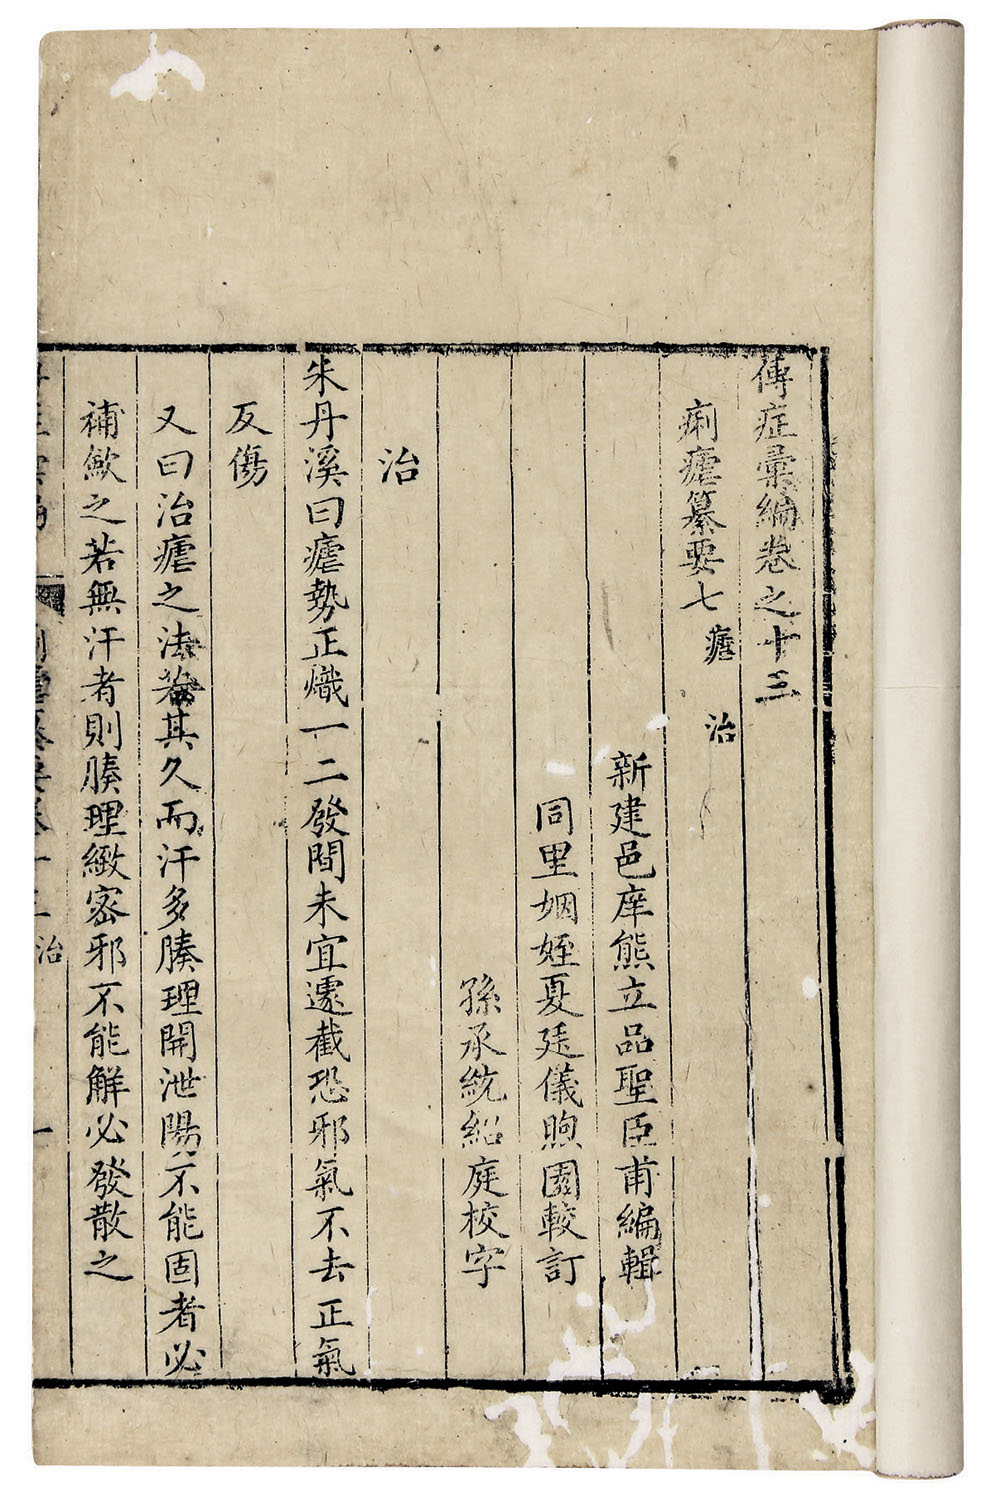 傳症彙編卷之十三
痢瘧纂要七 瘧 治
新建邑庠熊立品聖臣甫編輯
同里姻姪夏廷儀煦園較訂
孫承統紹庭校字
治
朱丹溪曰瘧勢正熾一二發間未宜遽截恐邪氣不去正氣
反傷
又曰治瘧之法若其久而汗多腠理開泄陽不能固者必
補歛之若無汗者則腠理緻密邪不能解必發散之
治 一